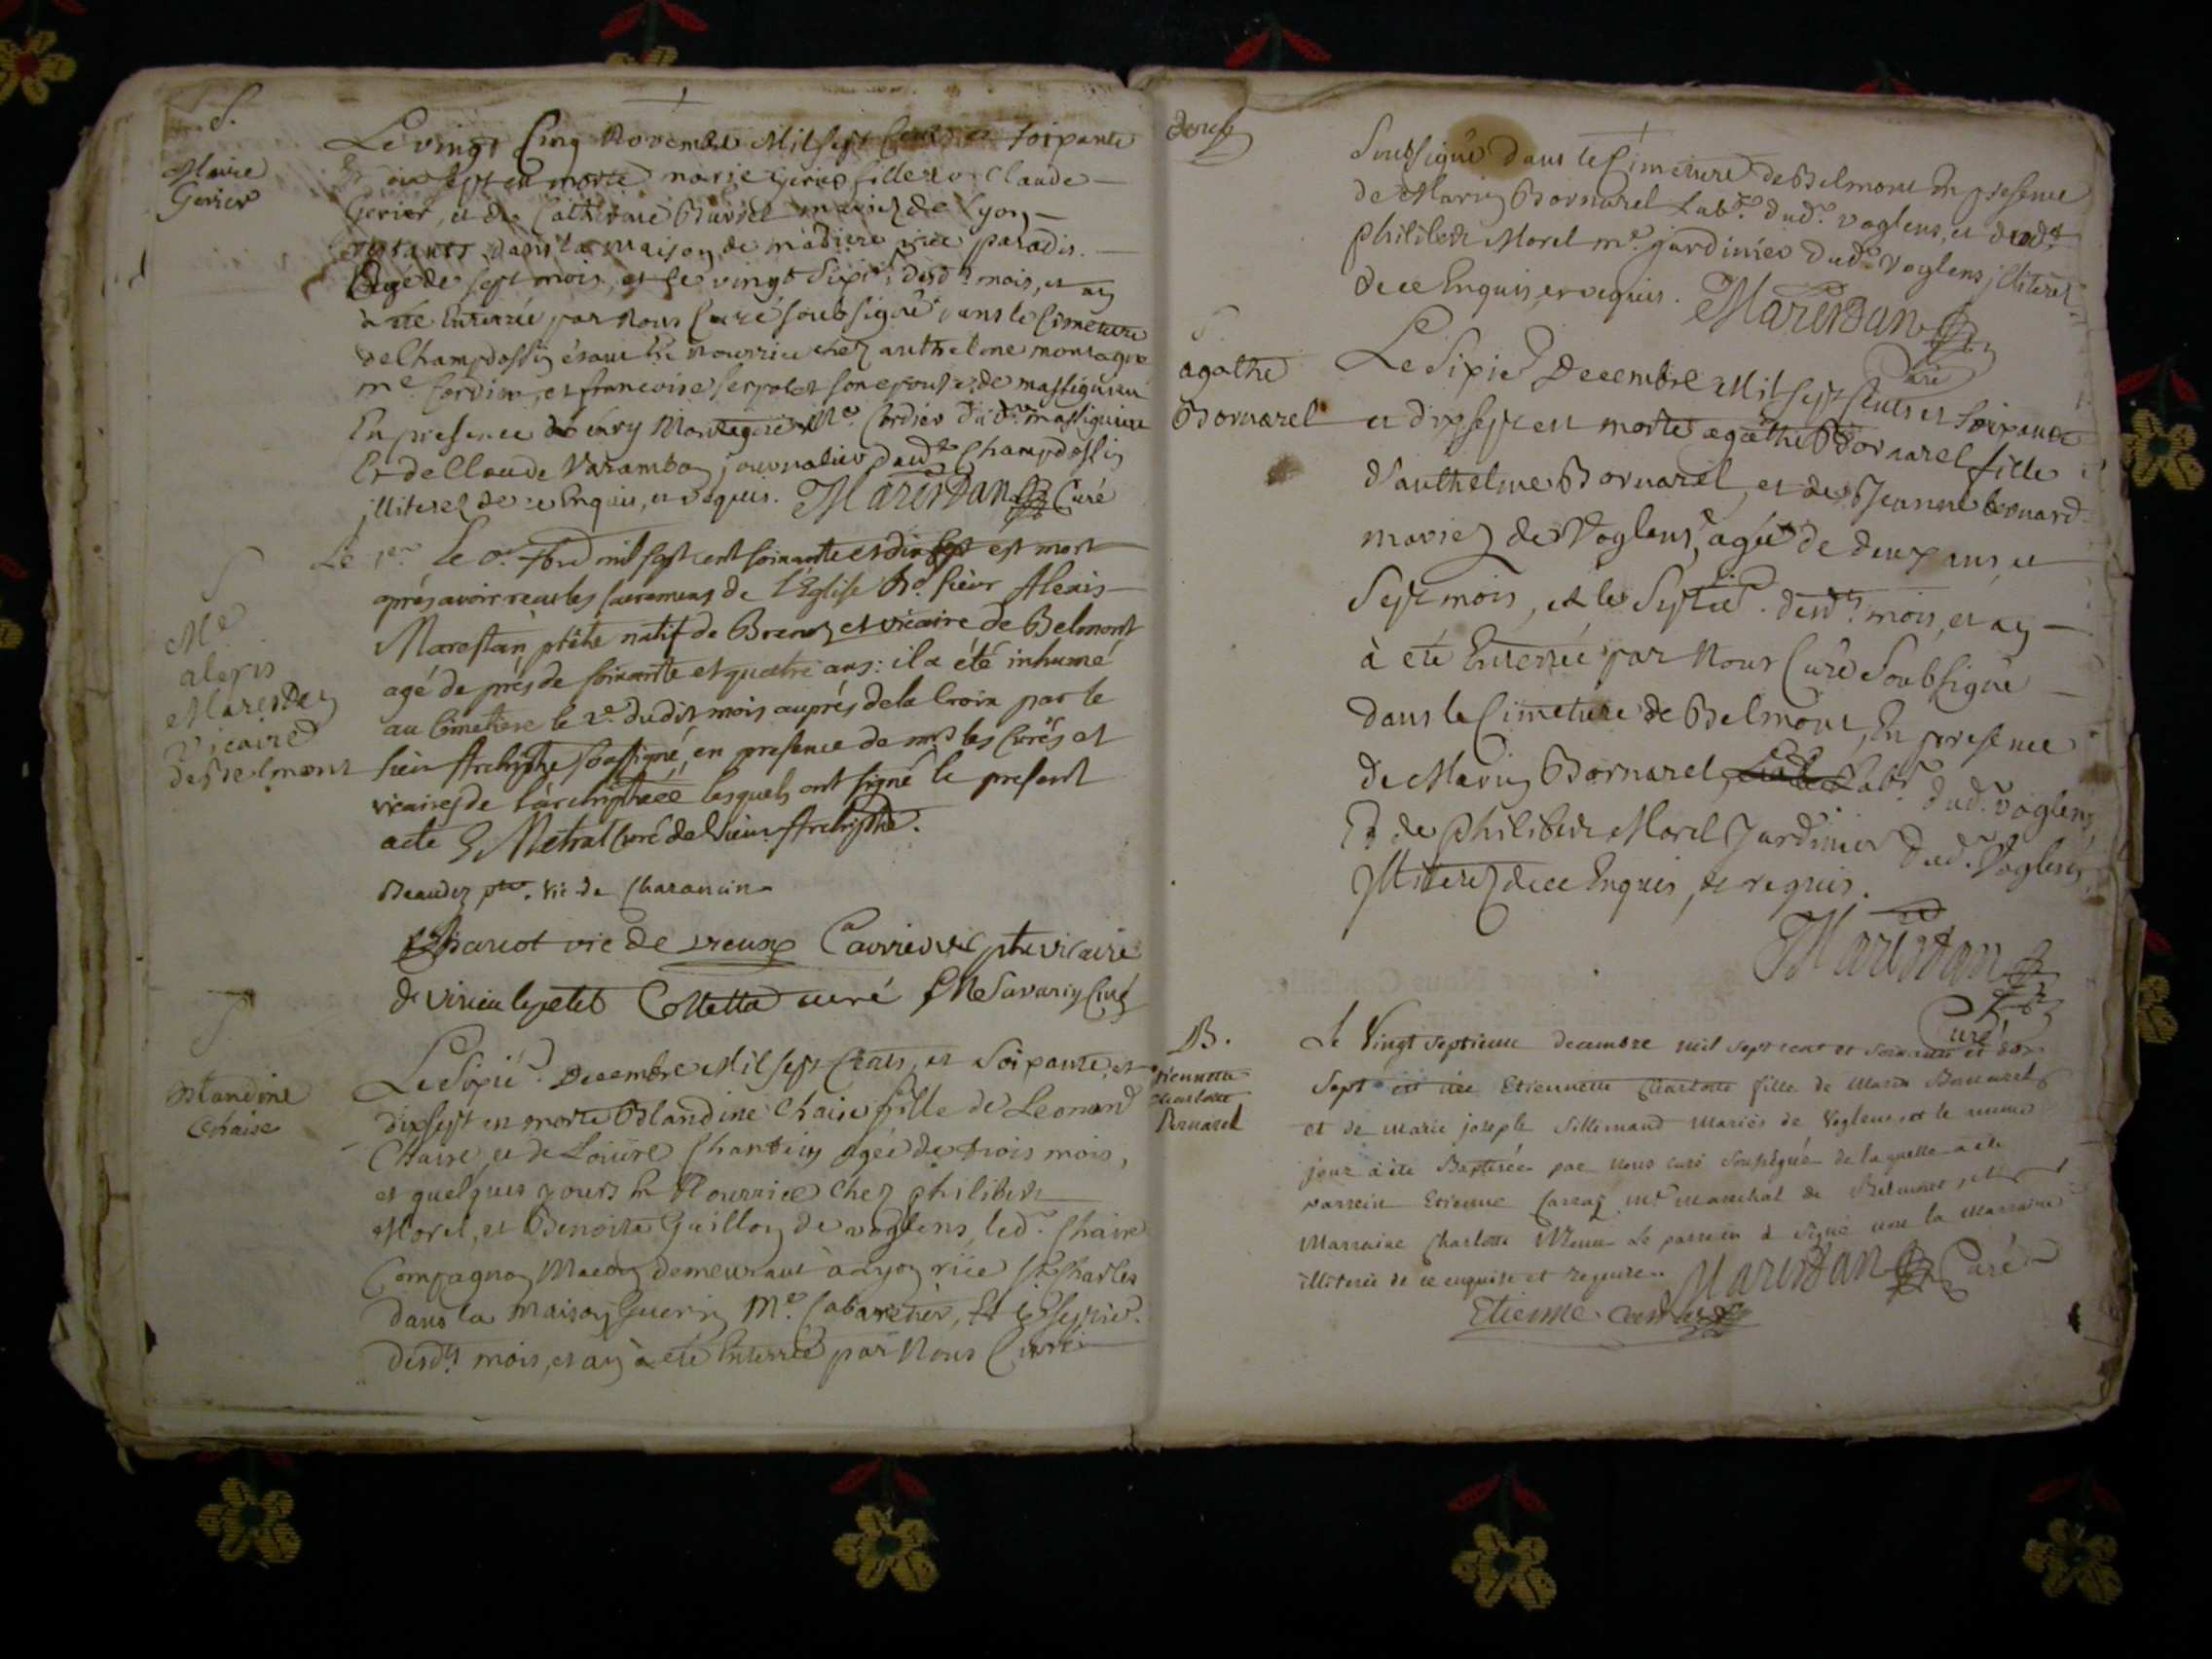 S.
Marie
Gerier
Le vingt Cinq Novembre Mil sept Cents et soixante
et dix sept est morte marie Gerier fille de Claude
Gerier, et de Catherine mariez de Lyon
dans la maison de rüe paradis.
Agée de sept mois, et le vingt Sixie. desd.ts mois, et an
à été Enterrée par Nous Curé soubsigné dans le Cimetiere
de Champdossin étant En nourrice chez anthelme montagne
m.e Cordier, et francoise Serpolet son epouse, de massigneu
En presence de Montagne M.e Cordier dud. massignieu
Et de Claude Varambon journalier dud. Champdossin
illiterez de ce Enquis, et requis. Marestan Curé
S
M.e
alexis
Marestan
Vicaire
de Belmont
Le 1.er mil sept cent soixante et dix sept est mort
après avoir recu les sacremens de l'Eglise R.d sieur Alexis
Marestan ptrê natif de et vicaire de Belmont
agé de près de soixante et quatre ans : il a été inhumé
au cimetiere le 2.e dudit mois auprés de la Croix par le
sieur Archiptre soussigné, en presence de mrs les Curés et
vicaires de l'archiptréé lesquels ont signé le present
acte Metral Curé de Archiptre.
Beaudez ptre. vic de Charancin
vic de vieux ptre vicaire
de Virieu le petit Colletta curé Savarin Curé
S
Blandine
Chaise
Le Sixié. Decembre Mil sept Cents, et Soixante, et
dix sept est morte Blandine Chaise fille de Leonard
Chaise, et de Loüise agée de trois mois,
et quelques jours En Nourrice chez philibert
Morel, et Benoite Guillon de voglens, led. Chaise
Compagnon Macon demeurant à Lyon rüe St. Charles
dans la maison Guerin M.e Cabaretier, Et le Septie.
desd.ts mois, et an à été Enterrée par Nous Curé
Soubsigné dans le Cimetiere de Belmont En presence
de Marin Bornarel Lab.r dud. voglens, et dud.
philibert Morel m.e jardinier dud. Voglens illiterez
de ce Enquis, et requis. Marestan
Curé
S
agathe
Bornarel
Le Sixie. Decembre Mil sept Cents et Soixante
et dix sept est morte agathe Bornarel fille
d'anthelme Bornarel, et de Jeanne
mariez de Voglens, agée de deux ans, et
Sept mois, et le Septie. desd.ts mois, et an
à été Enterrée par Nous Curé Soubsigné
dans le Cimetiere de Belmont, En presence
de Marin Bornarel, Lab.r dud. voglens
Et de philibert Morel Jardinier dud. Voglens
Illiterez de ce Enquis, et requis.
Marestan
Curé
B.
Etiennette
Charlotte
Bornarel
Le Vingt septieme decembre mil sept cent et soixante et dix
sept est née Etiennette Charlotte fille de Marin Bornarel
et de Marie joseph Sillemand Mariés de Voglens et le meme
jour à été Baptisée par nous curé soussigné de laquelle a été
parrein Etienne m.e marechal de Belmont, et
Marraine Charlotte Le parrein à signé non la marraine
illiterée de ce enquise et requise. Marestan Curé
Etienne